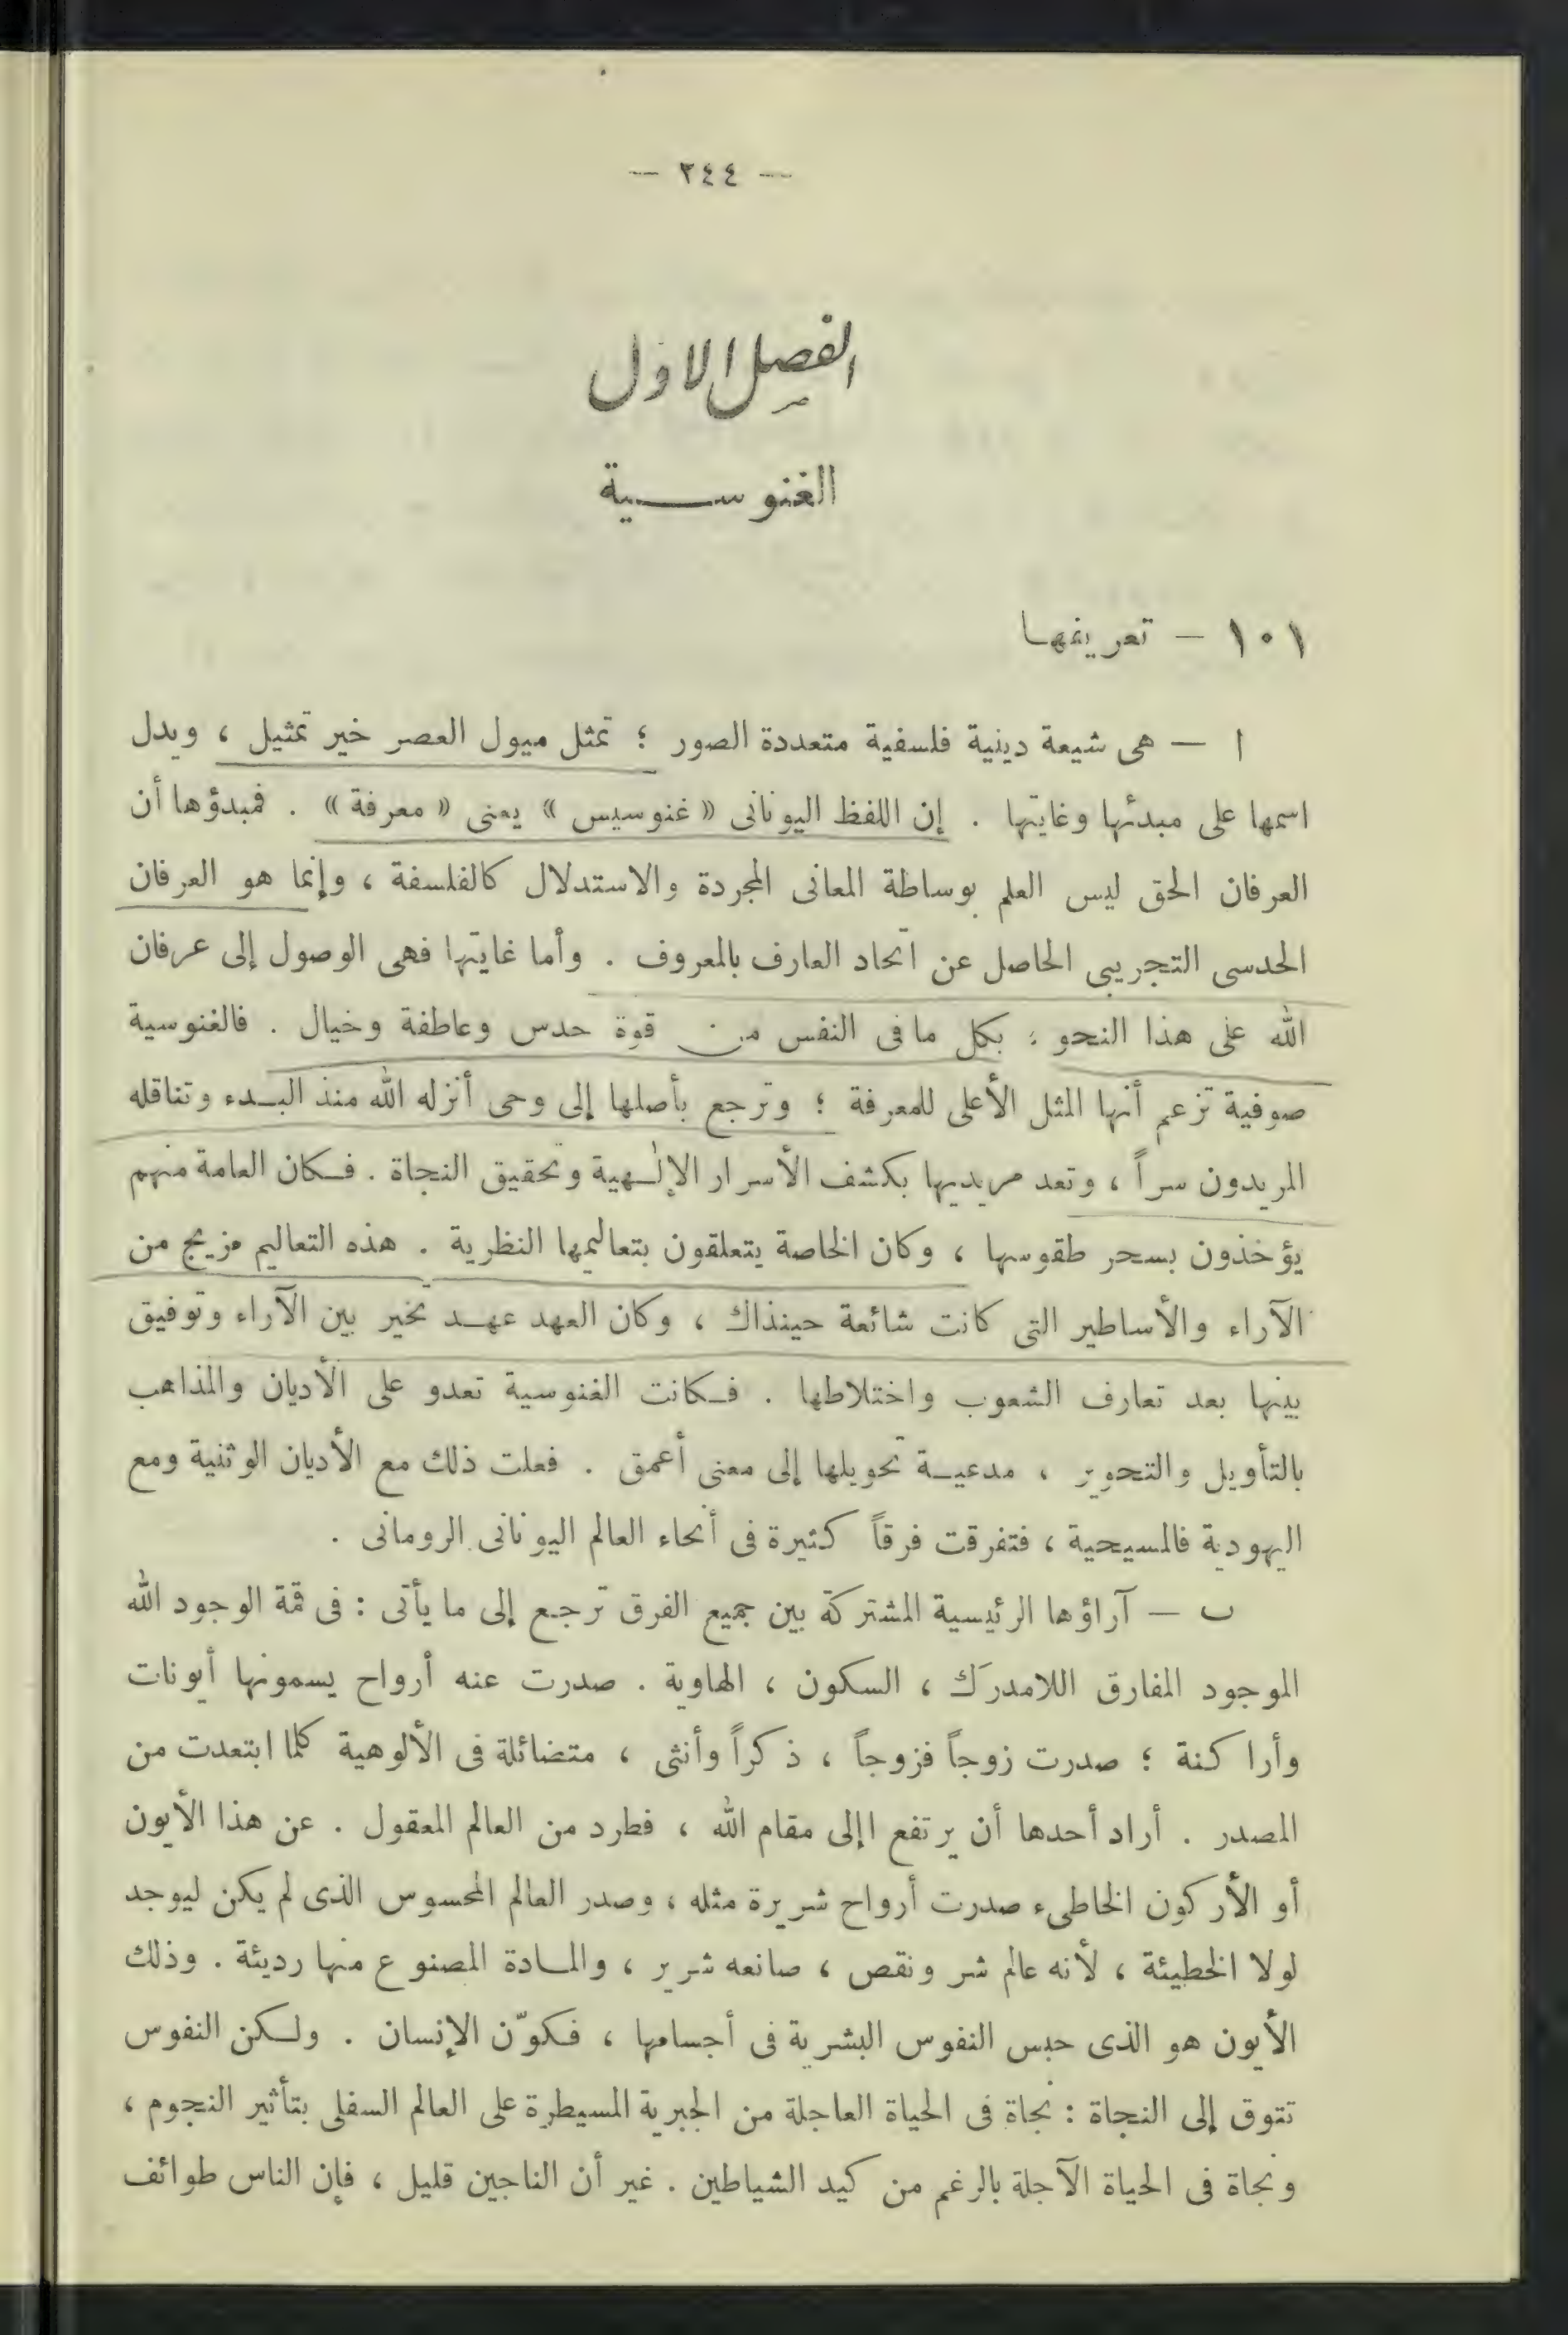 — ٢٤٤ —
الفصل الأول
الغنوسية
١٠١ — تعريفها
ا — هى شيعة دينية فلسفية متعددة الصور ؛ تمثل ميول العصر خير تمثيل ، ويدل
اسمها على مبدئها وغايتها . إن اللفظ اليونانى « غنوسيس » يعنى « معرفة » . فمبدؤها أن
العرفان الحق ليس العلم بوساطة المعانى المجردة والاستدلال كالفلسفة ، وإنما هو العرفان
الحدسى التجريبى الحاصل عن اتحاد العارف بالمعروف . وأما غايتها فهى الوصول إلى عرفان
الله على هذا النحو : بكل ما فى النفس من قوة حدس وعاطفة وخيال . فالغنوسية
صوفية تزعم أنها المثل الأعلى للمعرفة ؛ وترجع بأصلها إلى وحى أنزله الله منذ البدء وتناقله
المريدون سراً ، وتعد مريديها بكشف الأسرار الإلٰهية وتحقيق النجاة . فكان العامة منهم
يؤخذون بسحر طقوسها ، وكان الخاصة يتعلقون بتعاليمها النظرية . هذه التعاليم مزيج من
الآراء والأساطير التى كانت شائعة حينذاك ، وكان العهد عهد تخير بين الآراء وتوفيق
بينها بعد تعارف الشعوب واختلاطها . فكانت الغنوسية تعدو على الأديان والمذاهب
بالتأويل والتحوير ، مدعية تحويلها إلى معنى أعمق . فعلت ذلك مع الأديان الوثنية ومع
اليهودية فالمسيحية ، فتفرقت فرقاً كثيرة فى أنحاء العالم اليونانى الرومانى .
ب — آراؤها الرئيسية المشتركة بين جميع الفرق ترجع إلى ما يأتى : فى قمة الوجود الله
الموجود المفارق اللامدرَك ، السكون ، الهاوية . صدرت عنه أرواح يسمونها أيونات
وأراكنة ؛ صدرت زوجاً فزوجاً ، ذكراً وأنثى ، متضائلة فى الألوهية كلما ابتعدت من
المصدر . أراد أحدها أن يرتفع اإلى مقام الله ، فطرد من العالم المعقول . عن هذا الأيون
أو الأركون الخاطىء صدرت أرواح شريرة مثله ، وصدر العالم المحسوس الذى لم يكن ليوجد
لولا الخطيئة ، لأنه عالم شر ونقص ، صانعه شرير ، والمادة المصنوع منها رديئة . وذلك
الأيون هو الذى حبس النفوس البشرية فى أجسامها ، فكوّن الإنسان . ولكن النفوس
تتوق إلى النجاة : نجاة فى الحياة العاجلة من الجبرية المسيطرة على العالم السفلى بتأثير النجوم ،
ونجاة فى الحياة الآجلة بالرغم من كيد الشياطين . غير أن الناجين قليل ، فإن الناس طوائف